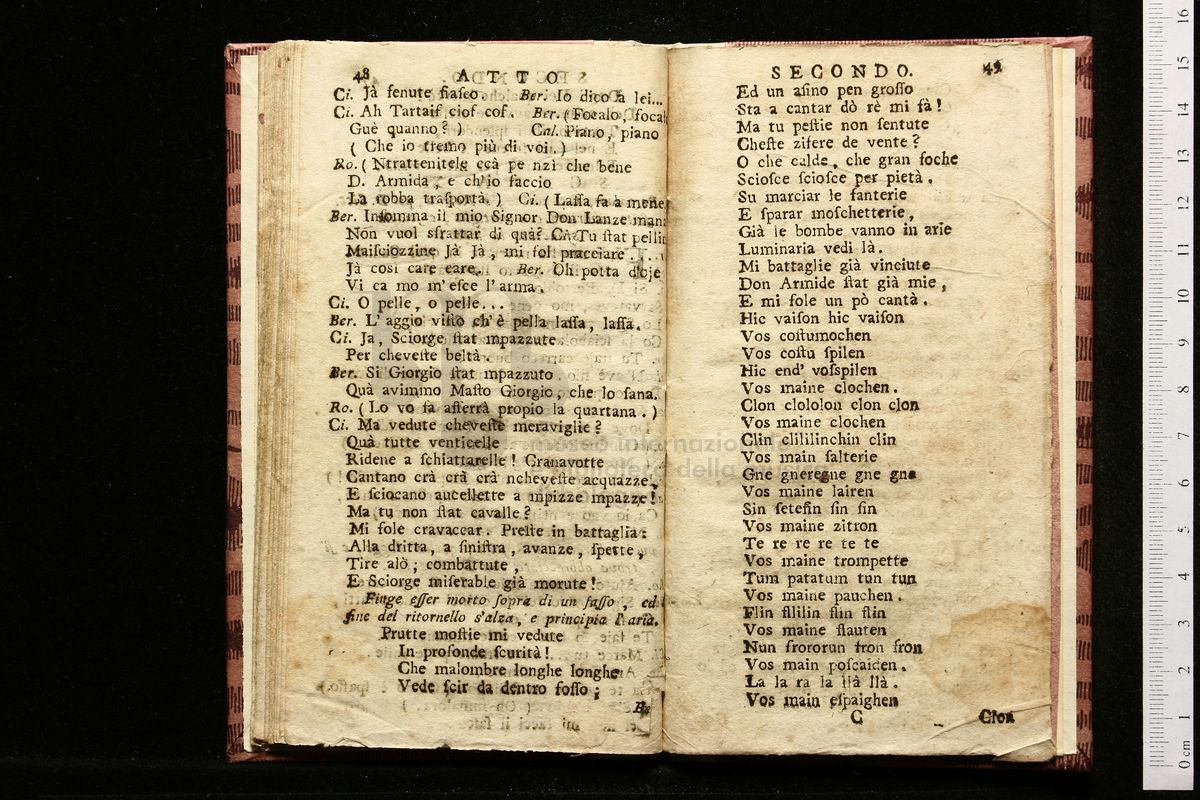 48 ATTO
Ci. Jà ſenute fiaſco. Ber. Io dico a lei...
Ci. Ah Tartaif cioſ coſ. Ber. (Focalo, foca
Guè quanno?) Cal. Piano, piano
( Che io tremo più di voi. )
Ro. ( Ntrattenitele ccà pe nzì che bene
D. Armida, e ch'io faccio
La robba traſporta. ) Ci. ( Laſſa fa a mene
Ber. Inſomma il mio Signor Don Lanze man
Non vuol sfrattar di quà? Ci. Tu ſtat pelli
Maiſciozzine Jà Jà, mi fol pracciare...
Jà così care care. Ber. Oh potta d'oje
Vi ca mo m'eſce l'arma.
Ci. O pelle, o pelle...
Ber. L'aggio viſto ch'è pella laſſa, laſſa.
Ci. Ja, Sciorge ſtat mpazzute
Per cheveſte beltà.
Ber. Si Giorgio ſtat mpazzuto
Quà avimmo Maſto Giorgio, che lo ſana.
Ro. ( Lo vo fa afferrà propio la quartana. )
Ci. Ma vedute cheveſte meraviglie?
Quà tutte venticelle
Ridene a ſchiattarelle! Granavotte
Cantano crà crà crà ncheveſte acquazze,
E ſciocano aucellette a mpizze mpazze!
Ma tu non ſtat cavalle?
Mi fole cravaccar. Preſte in battaglia:
Alla dritta, a ſiniſtra, avanze, ſpette,
Tire alò; combattute,
E Sciorge miſerable già morute!
Finge eſſer morto ſopra di un ſaſſo, ed
fine del ritornello s'alza, e principia l'aria.
Prutte moſtie mi vedute
In profonde ſcurità!
Che malombre longhe longhe
Vede ſcir da dentro foſſo;
Ed
SECONDO. 49
Ed un aſino pen groſſo
Sta a cantar dò rè mi fà!
Ma tu peſtie non ſentute
Cheſte zifere de vente?
O che calde, che gran foche
Scioſce ſcioſce per pietà.
Su marciar le fanterie
E ſparar moſchetterie,
Già le bombe vanno in arie
Luminaria vedi là.
Mi battaglie già vinciute
Don Armide ſtat già mie,
E mi fole un pò cantà.
Hic vaiſon hic vaiſon
Vos coſtumochen
Vos coſtu ſpilen
Hic end' voſspilen
Vos maine clochen.
Clon clololon clon clon
Vos maine clochen
Clin clililinchin clin
Vos main ſalterie
Gne gneregne gne gne
Vos maine lairen
Sin ſeteſin ſin ſin
Vos maine zitron
Te re re re te te
Vos maine trompette
Tum patatum tun tun
Vos maine pauchen.
Flin flilin flin flin
Vos maine flauten
Nun frororun fron fron
Vos main poſcaiden.
La la ra la llà llà.
Vos main eſpaighen
C Clon